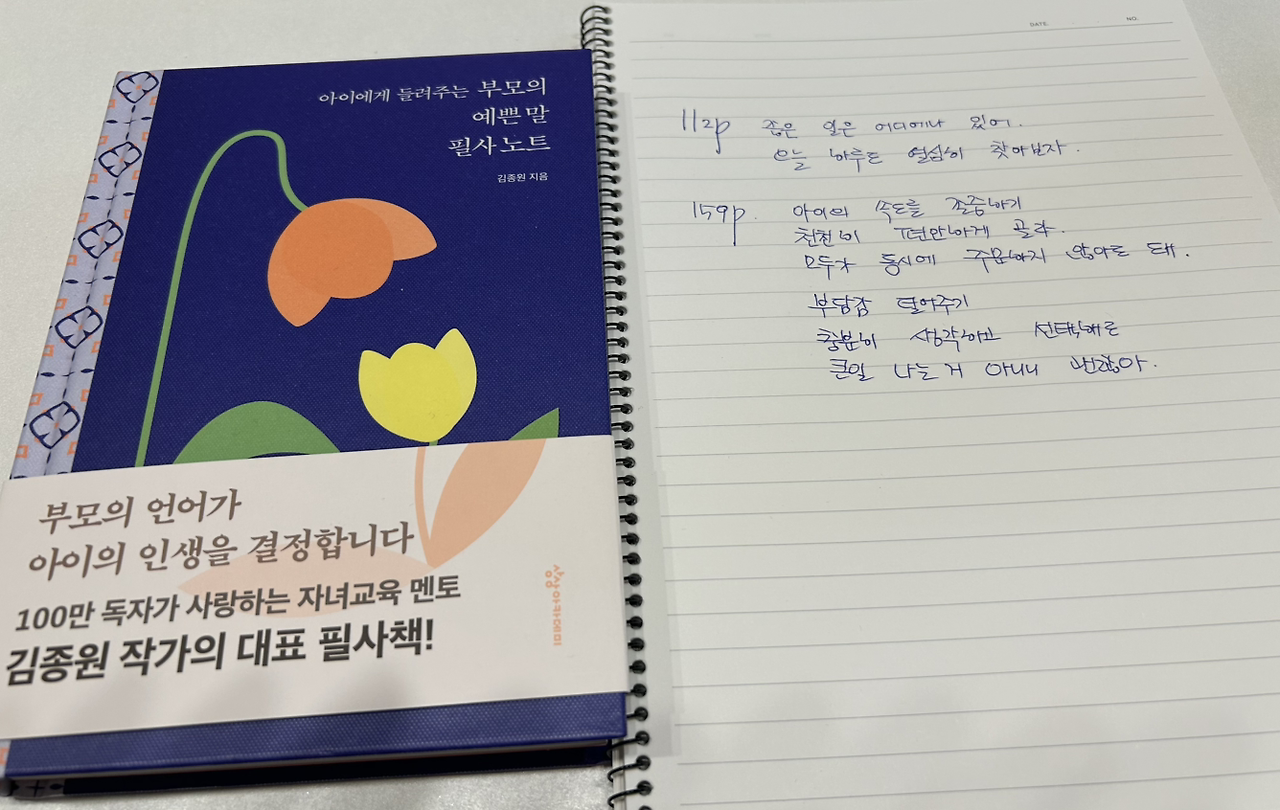 아이에게 들려주는 부모의
예쁜 말
필사 노트
김종원 지음
부모의 언어가
아이의 인생을 결정합니다
100만 독자가 사랑하는 자녀교육 멘토
김종원 작가의 대표 필사책!
상상아카데미
DATE. NO.
112p 좋은 일은 어디에나 있어.
오늘 하루도 열심히 찾아보자.
159p. 아이의 속도를 존중하기
천천히 편안하게 골라.
모두가 동시에 주문하지 않아도 돼.
부담감 덜어주기
충분히 생각하고 선택해도
큰일 나는 거 아니니 괜찮아.